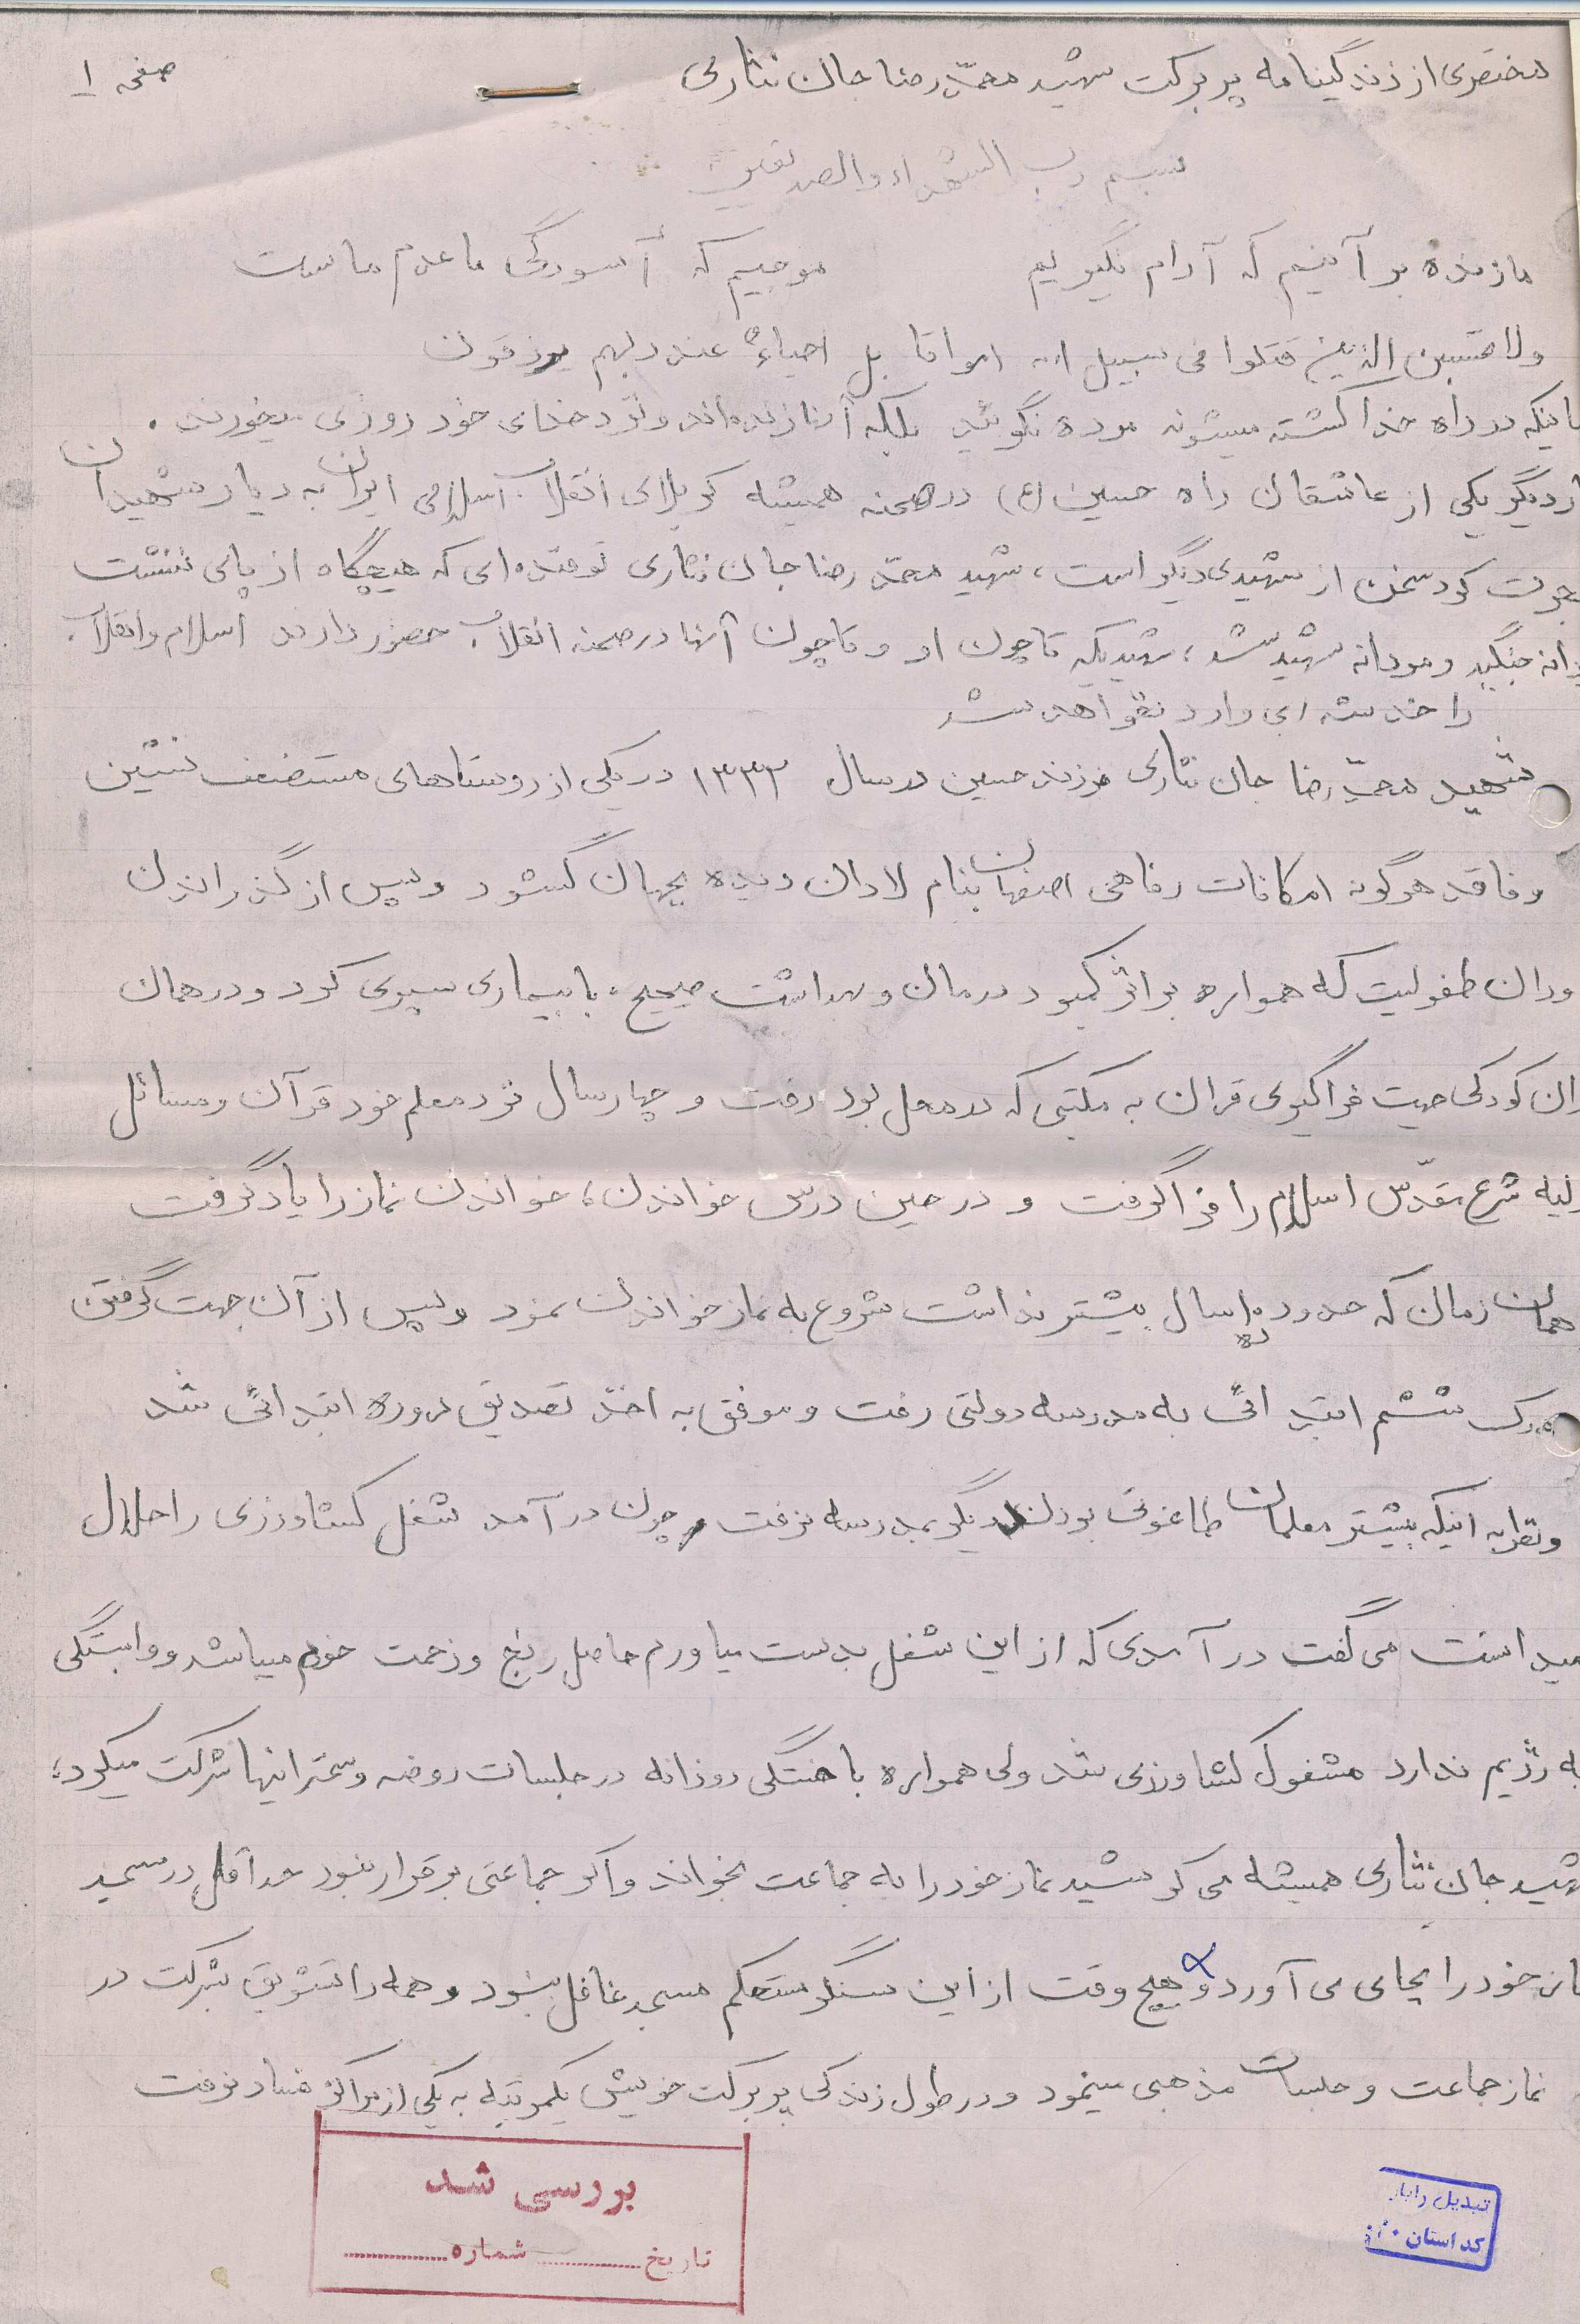 مختصری از زندگینامه پر برکت شهید محمّد رضا جان نثاری
صفحه ۱
بسم رب الشهداء والصدیقین
ما زنده بر آنیم که آرام نگیریم موجیم که آسودگی ما عدم ماست
ولا تحسبن الذین قتلوا فی سبیل الله امواتا بل احیاءٌ عند ربهم یرزقون
انیکه در راه خدا کشته میشوند مرده نگوئید بلکه آنها زنده‌اند و نزد خدای خود روزی میخورند .
ار دیگر یکی از عاشقان راه حسین (ع) در صحنه همیشه کربلای انقلاب اسلامی ایران به دیار شهیدان
جرت کرد سخن از شهیدی دیگر است ، شهید محمّد رضا جان نثاری توفنده‌ای که هیچگاه از پای ننشست
دانه جنگید و مردانه شهید شد ، شهیدیکه تا چون او و تا چون آنها در صحنه انقلاب حضور دارند اسلام و انقلاب
را خدشه ای وارد نخواهد شد
شهید محمّد رضا جان نثاری فرزند حسین در سال ۱۳۳۳ در یکی از روستاهای مستضعف نشین
و فاقد هرگونه امکانات رفاهی اصفهان بنام لادان دیده بجهان گشود و پس از گذراندن
وران طفولیت که همواره بر اثر کمبود درمان و بهداشت صحیح با بیماری سپری کرد و در همان
ران کودکی جهت فراگیری قران به مکتبی که در محل بود رفت و چهار سال نزد معلم خود قرآن و مسائل
لیه شرع مقدّس اسلام را فرا گرفت و در حین درس خواندن ، خواندن نماز را یاد گرفت
همان زمان که حدود ده سال بیشتر نداشت شروع به نماز خواندن نمود و پس از آن جهت گرفتن
مدرک ششم ابتدائی به مدرسه دولتی رفت و موفق به اخذ تصدیق دوره ابتدائی شد
و نظر به اینکه بیشتر معلمان طاغوتی بودند دیگر بمدرسه نرفت و چون در آمد شغل کشاورزی را حلال
میدانست می گفت در آمدی که از این شغل بدست میاورم حاصل رنج و زحمت خودم میباشد و وابستگی
به رژیم ندارد مشغول کشاورزی شد ولی همواره با خستگی روزانه در جلسات روضه و سخنرانیها شرکت میکرد ،
هید جان نثاری همیشه می کوشید نماز خود را به جماعت بخواند و اگر جماعتی برقرار نبود حداقل در مسجد
از خود را بجای می آورد و هیچ وقت از این سنگر مستحکم مسجد غافل نبود و همه را تشویق بشرکت در
نماز جماعت و جلسات مذهبی مینمود و در طول زندگی پر برکت خویش یکمرتبه به یکی از مراکز فساد نرفت
بررسی شد
تاریخ ............ شماره ............
تبدیل
کد استان